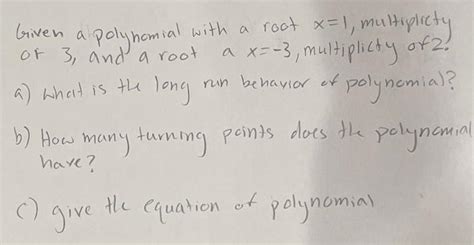 Given a polynomial with a root x=1, multiplicty
of 3, and a root a x=-3, multiplicty of 2.
a) what is the long run behavior of polynomial?
b) How many turning points does the polynomial
have?
c) give the equation of polynomial